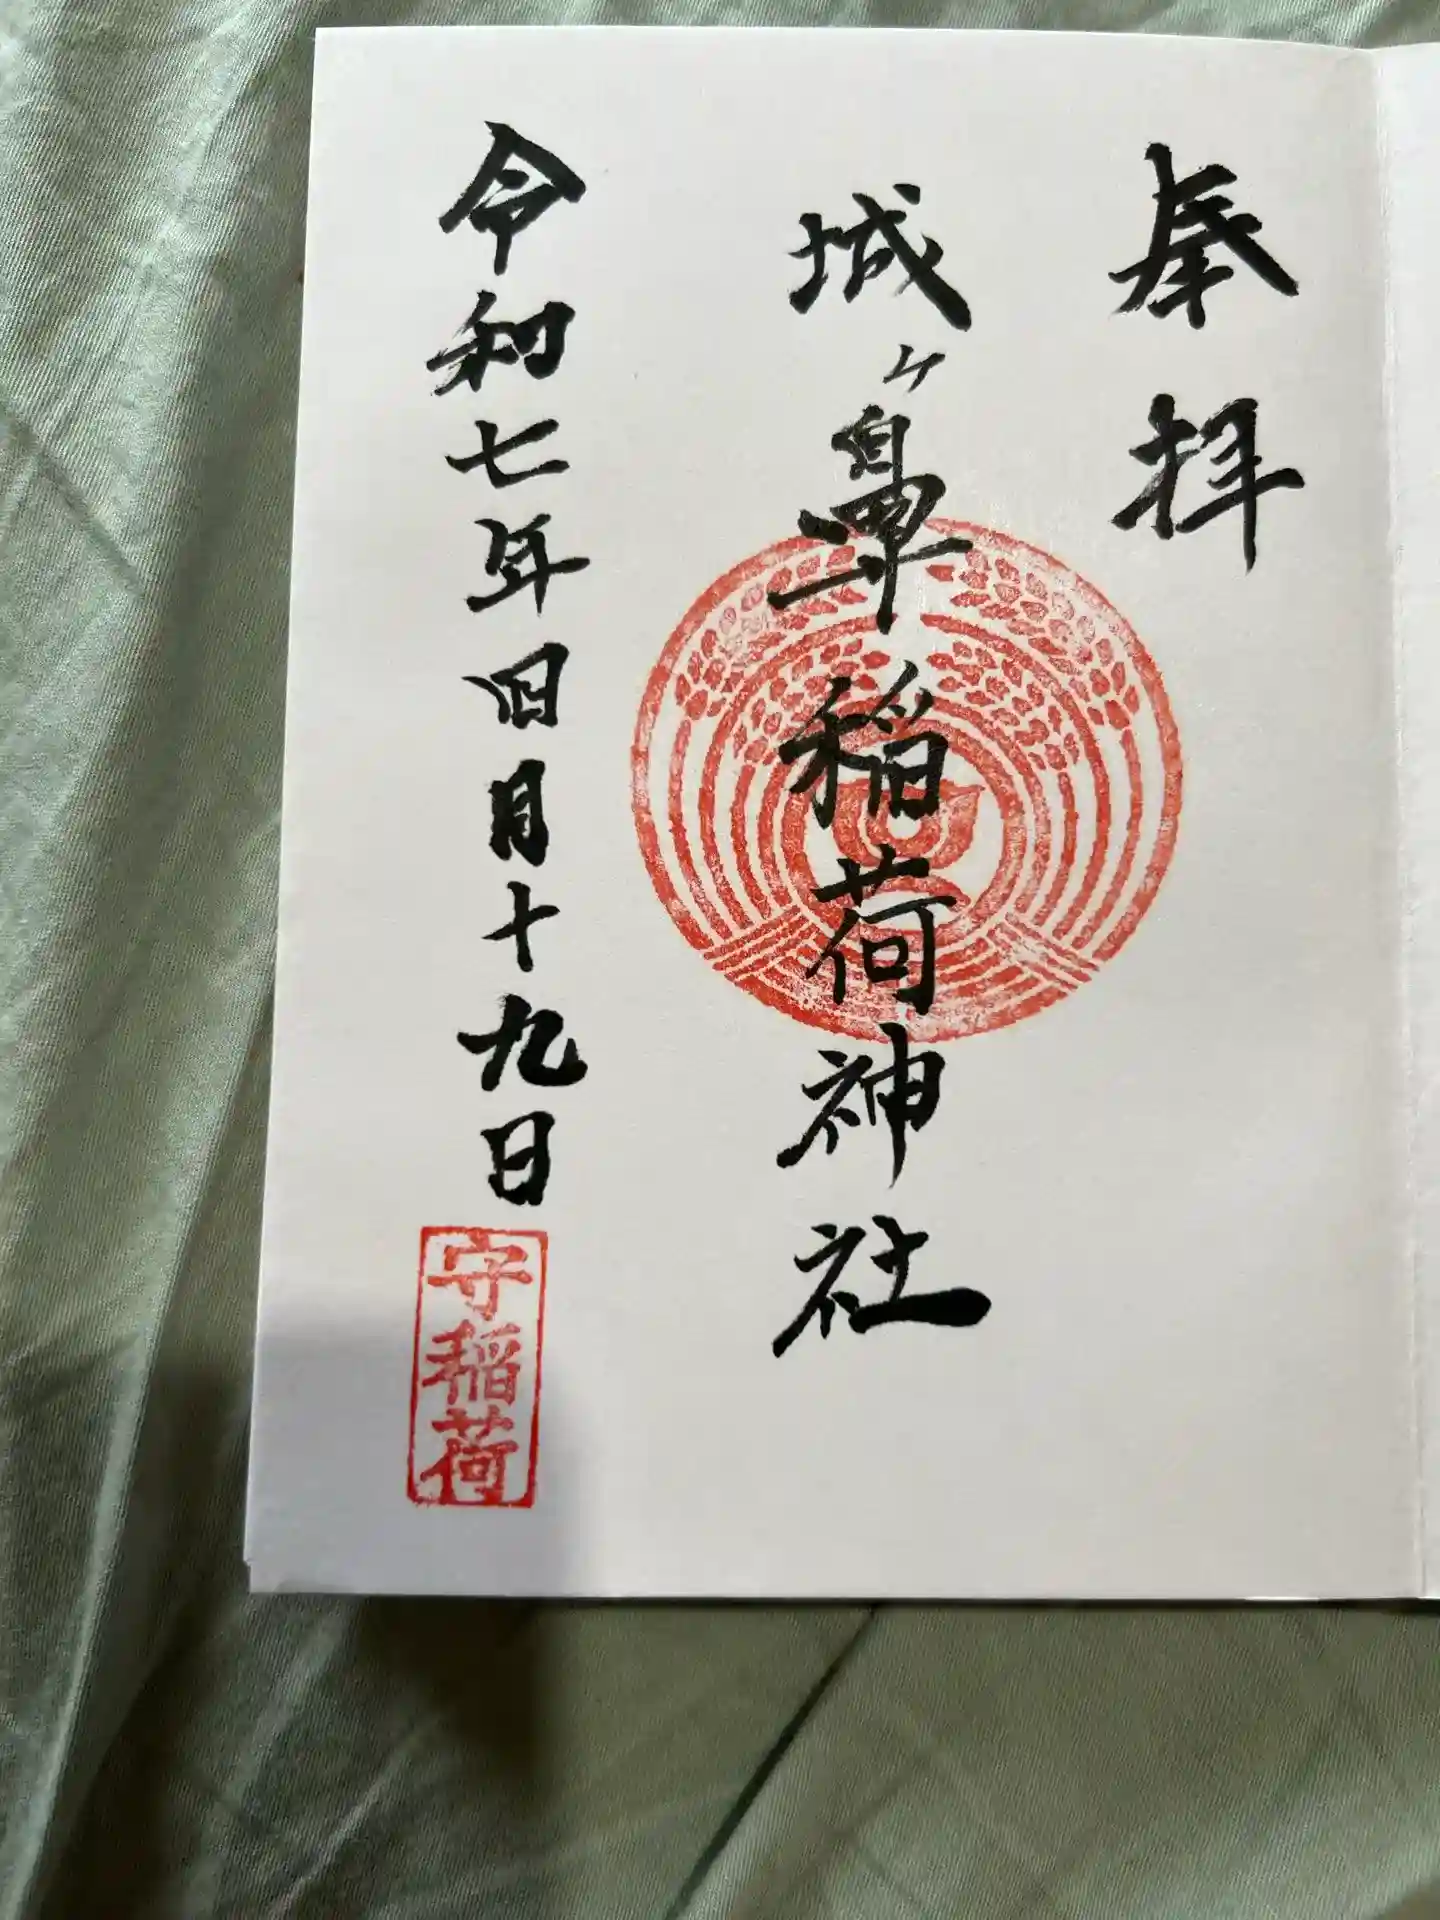 奉拝
城ヶ鼻稲荷神社
令和七年四月十九日
守稲荷